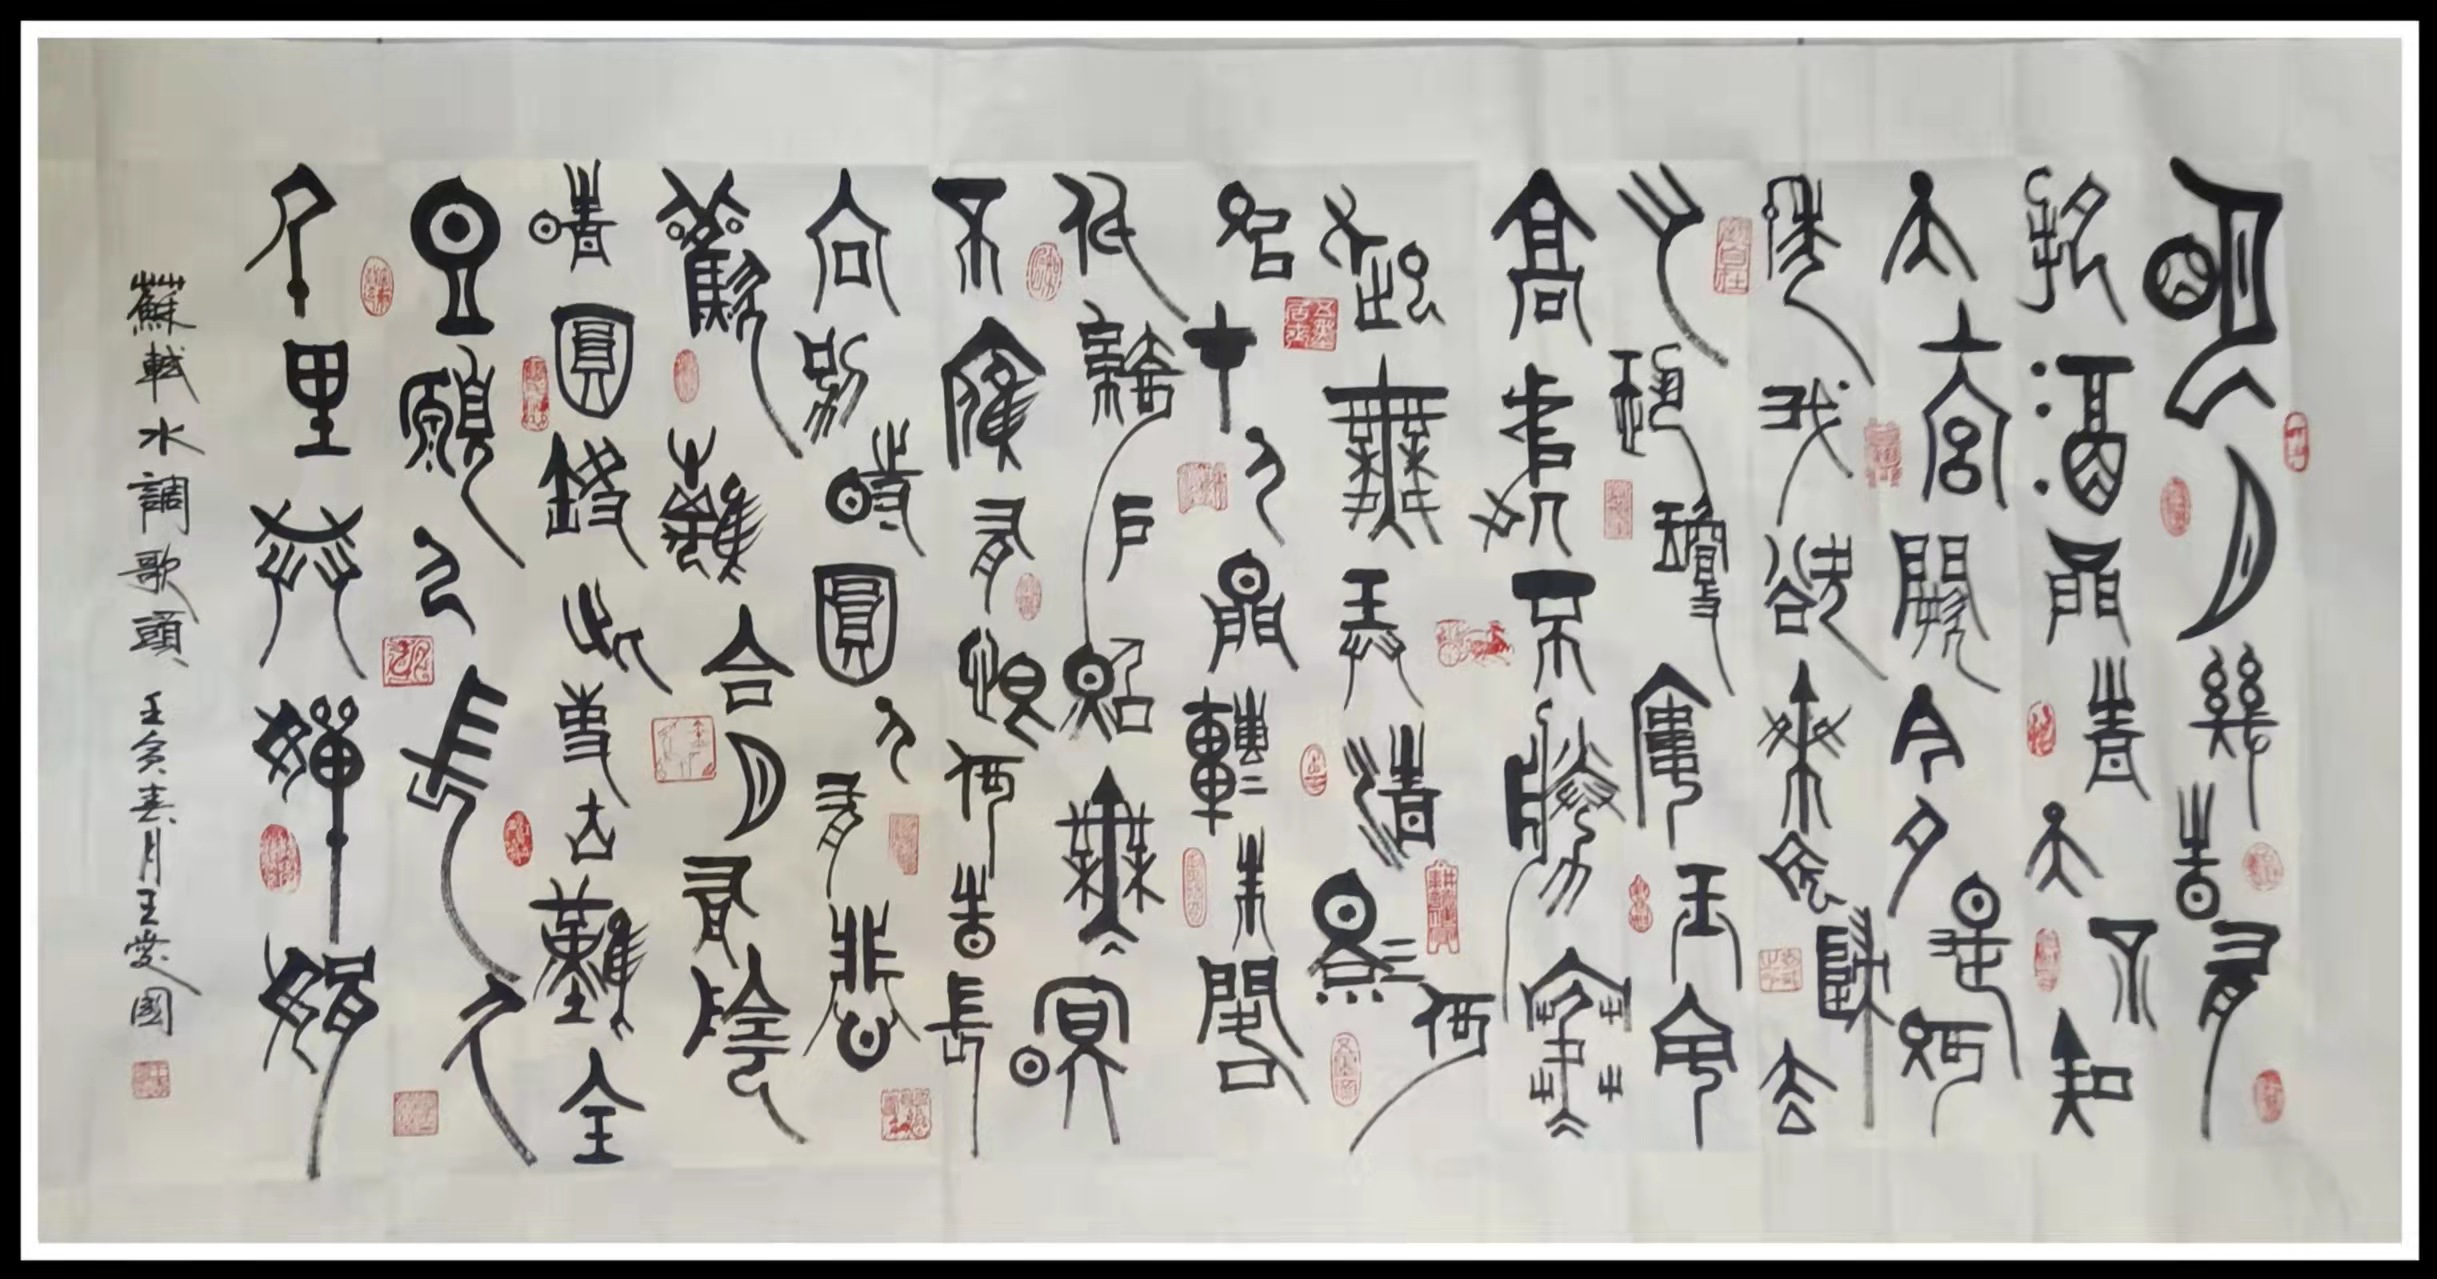 明月幾時有
把酒問青天不知
天上宮闕今夕是何
年我欲乘風歸去
又恐瓊樓玉宇
高處不勝寒
起舞弄清影何
似在人間轉朱閣
低綺户照無眠
不應有恨何事長
向別時圓人有悲
歡離合月有陰
晴圓缺此事古難全
但願人長久
千里共嬋娟
蘇軾水調歌頭 壬寅春月王愛國